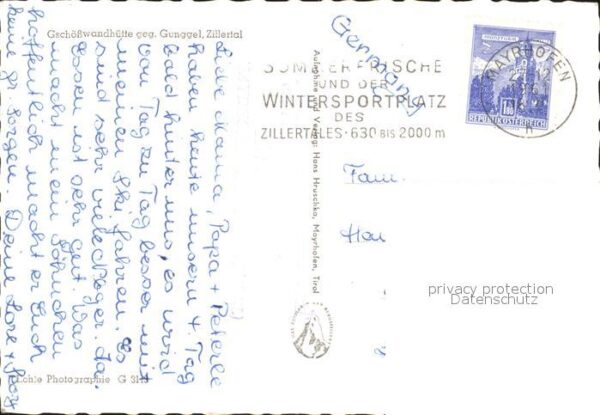 Gschößwandhütte geg. Gunggel, Zillertal
Liebe Mama, Papa + Peterle
haben heute unseren 4. Tag
bald hinter uns, es wird
von Tag zu Tag besser mit
meinem Ski fahren. Es
sind sehr viele da.
Essen ist sehr gut. Was
macht mein Söhnchen
hoffentlich macht er Euch
keine gr. Sorgen. Deine Lore +
Germany
Aufnahme und Verlag: Hans Hruschka, Mayrhofen, Tirol
SOMMERFRISCHE
UND DER
WINTERSPORTPLATZ
DES
ZILLERTALES · 630 BIS 2000 m
MAYRHOFEN
REPUBLIK ÖSTERREICH
Fam.
privacy protection
Datenschutz
Echte Photographie G